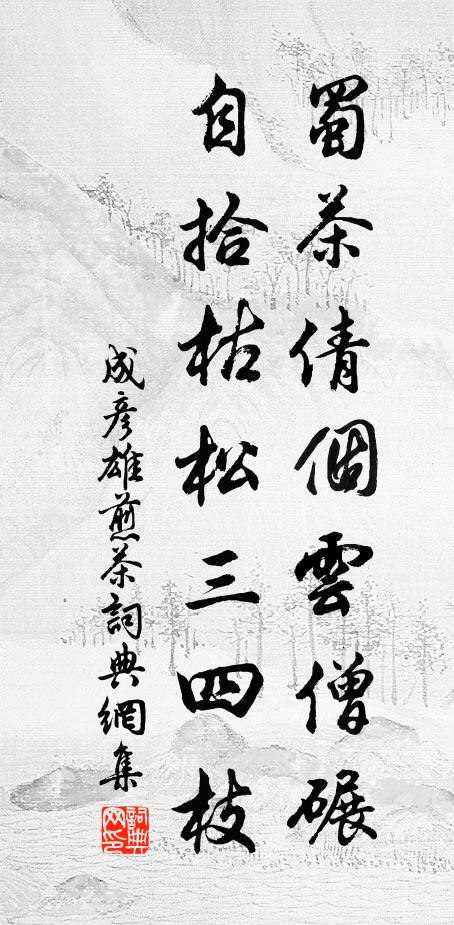 蜀茶倩個雲僧碾
自拾枯松三四枝
成彥雄煎茶詞典網集
詞典網印